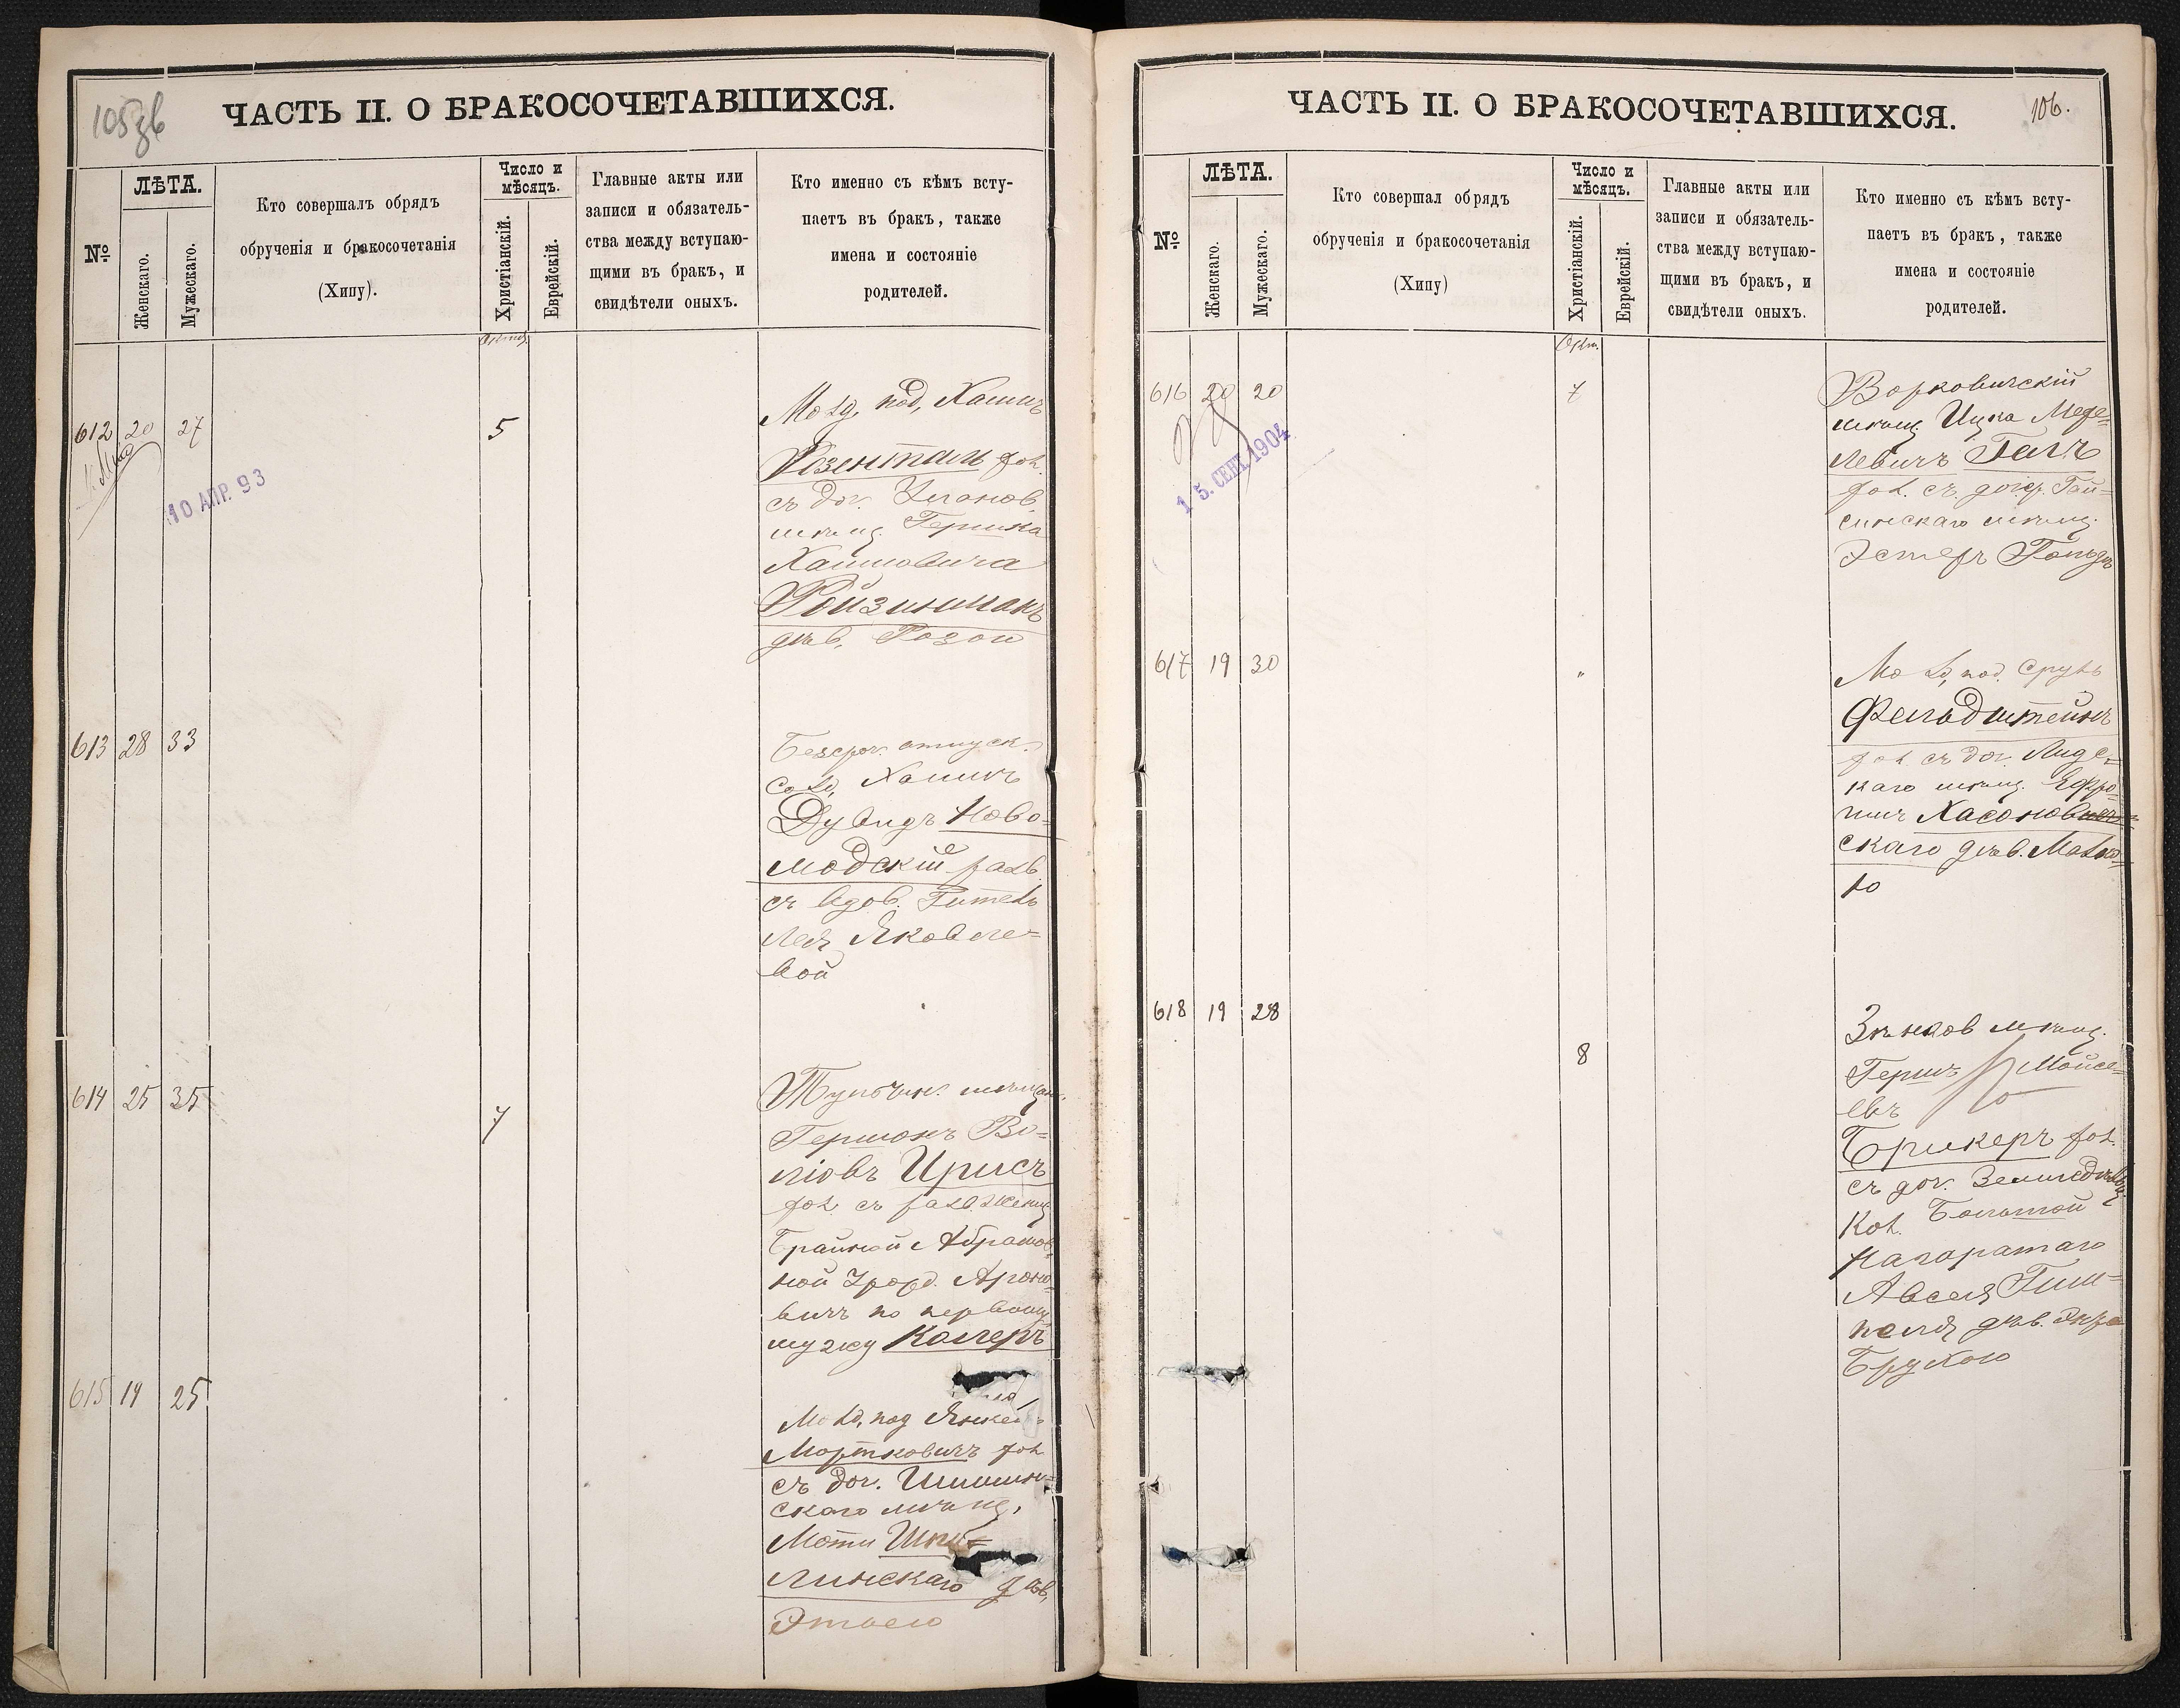 105 зв
ЧАСТЬ II. О БРАКОСОЧЕТАВШИХСЯ.
№
ЛѢТА.
Женскаго.
Мужескаго.
Кто совершалъ обрядъ
обрученія и бракосочетанія
(Хипу).
Число и
мѣсяцъ.
Христіанскій.
Еврейскій.
Главные акты или
записи и обязатель-
ства между вступаю-
щими въ бракъ, и
свидѣтели оныхъ.
Кто именно съ кѣмъ всту-
паетъ въ бракъ, также
имена и состояніе
родителей.
612 20 27
5
10 АПР. 93
под, Хаимъ
Розенталь хол.
съ доч.
мѣщ. Гершка
Хаимовича
Ройзинманъ
дѣв. Розою
613 28 33
Безсроч. отпуск.
Сол, Хаимъ
Дувидъ Ново-
модскій разв.
съ вдов.
Лея Яковле-
вой
614 25 35
7
Тульчин. мѣщан.
Гершонъ Во-
ліовъ Ирисъ
хол. съ разв. женщ.
Брайной Абрамов
ной Ароно-
вичъ по первому
мужу Коллеръ
615 19 25
под Янкель
Мортковичъ хол
съ доч.
скаго мѣщ,
Моти
линскаго дѣв,
Этлею
106.
ЧАСТЬ II. О БРАКОСОЧЕТАВШИХСЯ.
№
ЛѢТА.
Женскаго.
Мужескаго.
Кто совершал обрядъ
обрученія и бракосочетанія
(Хипу)
Число и
мѣсяцъ.
Христіанскій.
Еврейскій.
Главные акты или
записи и обязатель-
ства между вступаю-
щими въ бракъ, и
свидѣтели оныхъ.
Кто именно съ кѣмъ всту-
паетъ въ бракъ, также
имена и состояніе
родителей.
Окт.
616 20 20
7
15. СЕНТ. 1904
Ворковичскій
мѣщ. Ицка Меде-
левичъ Галъ
хол. съ дочер. Гай-
синскаго мѣщ.
Эстеръ Гольдъ
617 19 30
"
под. Сруль
Фельдштейнъ
хол съ доч. Лидс-
каго мѣщ. Ефро-
имъ
скаго дѣв.
ю
618 19 28
8
Зѣньков мѣщ.
Гершъ Мойсе-
евъ
Брикеръ хол.
съ доч. Земледѣльц
Кол. Большой
Авсея Гим-
пеля дѣв.
Брухою